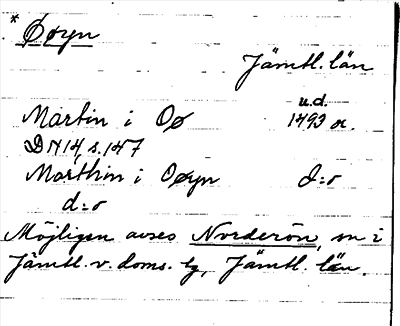 * Øøyn
Jämtl. län
Martin i Oø u.d. 1493 or.
DN 14, s. 147
Marthin i Oøyn d:o
d:o
Möjligen avses Norderön, sn i
Jämtl. v. doms. tg, Jämtl. län.